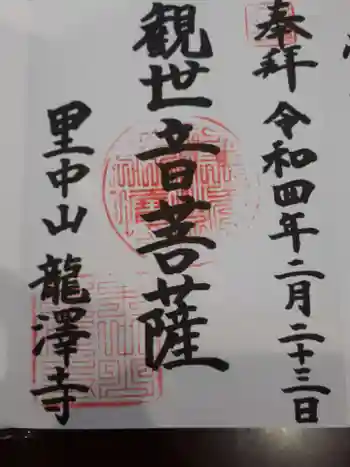 奉拝 令和四年二月二十三日
観世音菩薩
里中山 龍澤寺